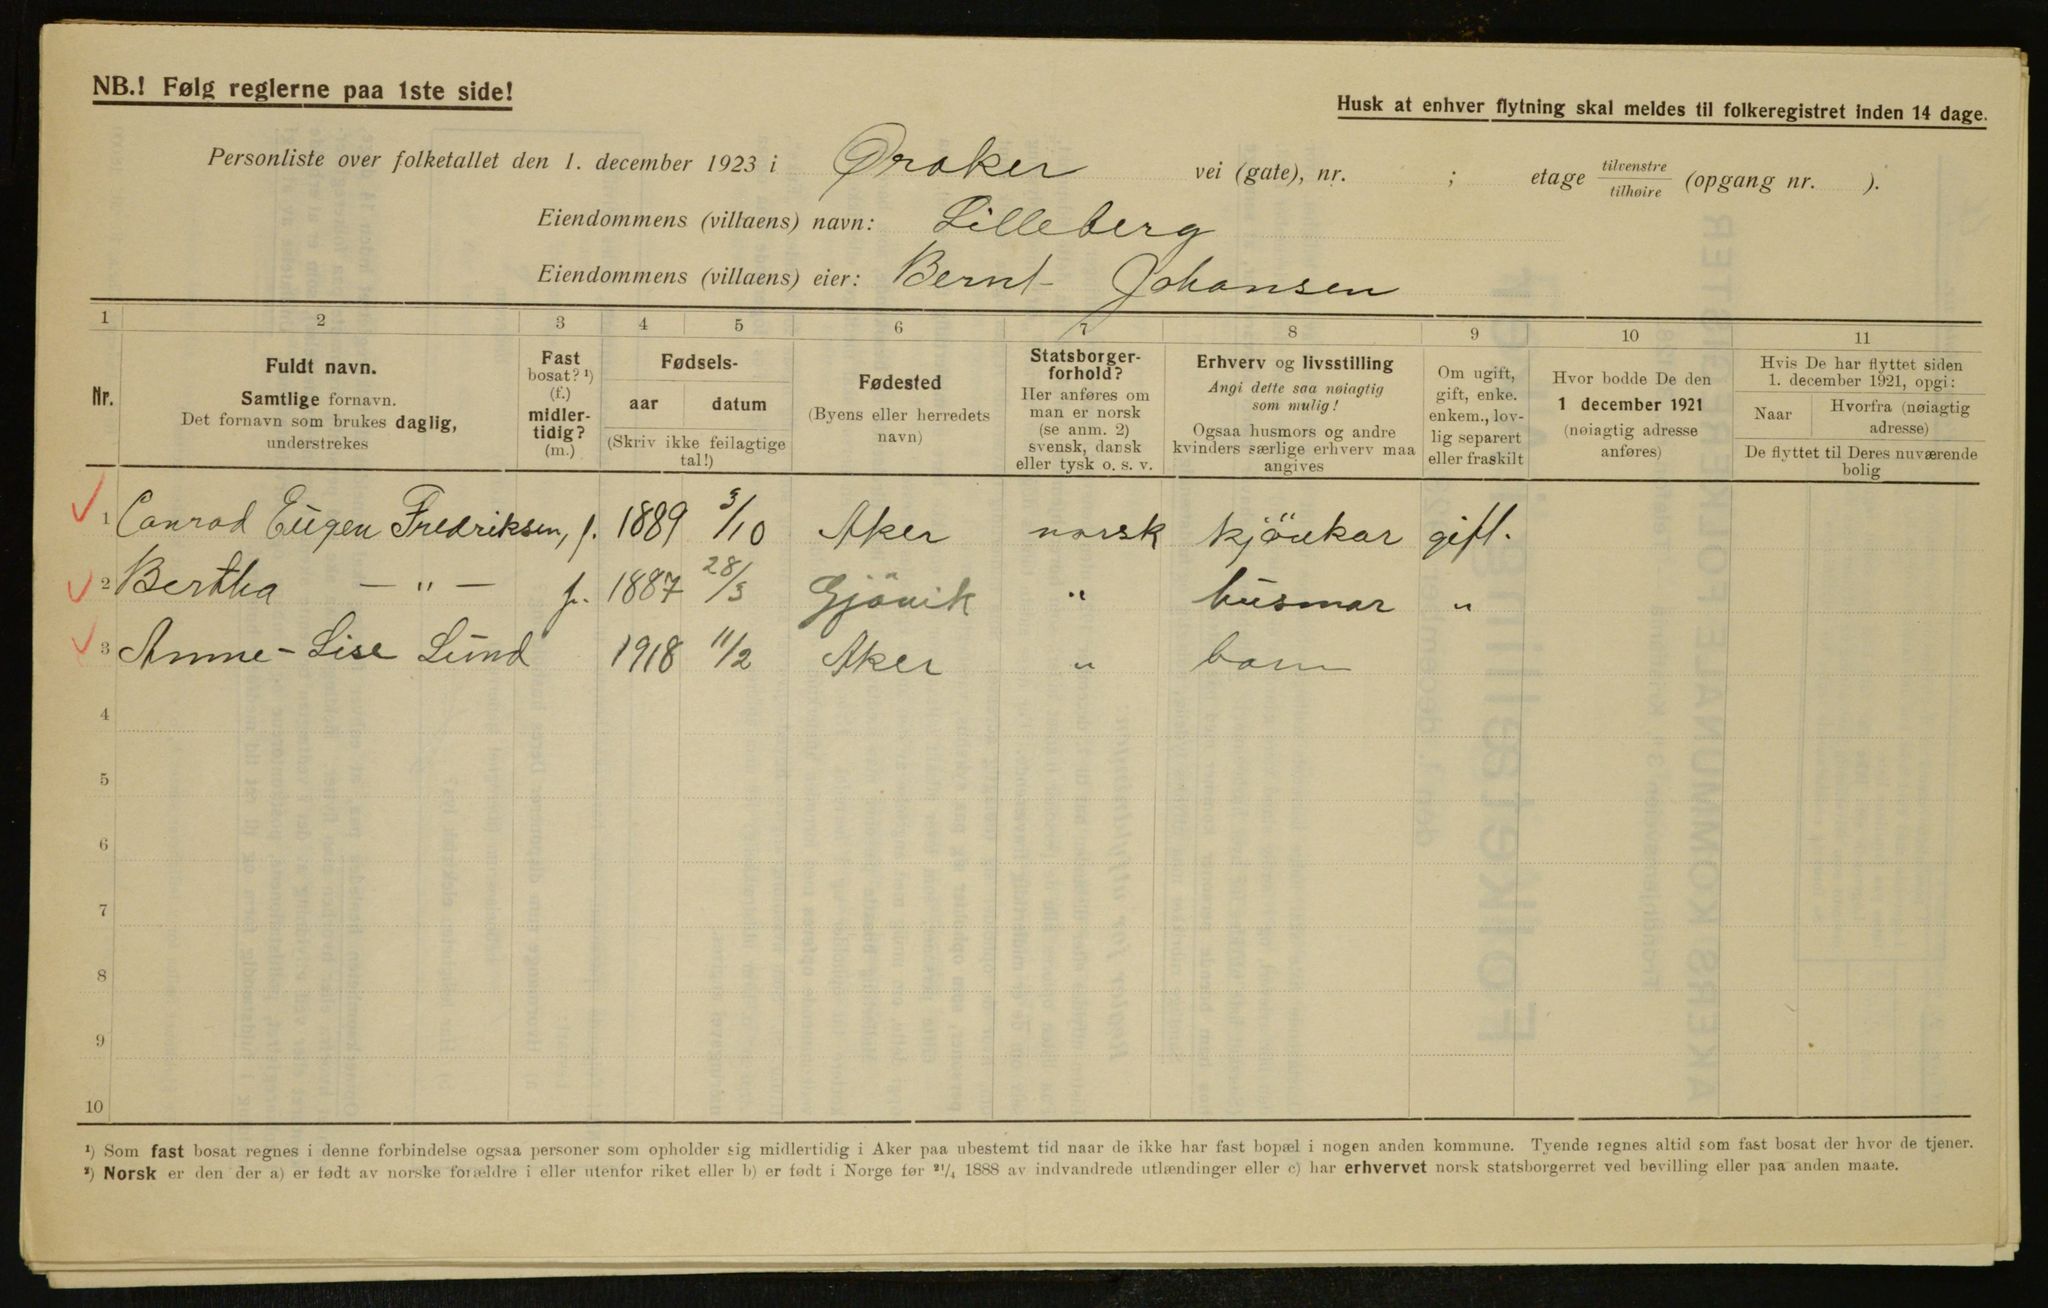 NB.! Følg reglerne paa 1ste side!
Husk at enhver flytning skal meldes til folkeregistret inden 14 dage.
Personliste over folketallet den 1. december 1923 i Øraker vei (gate), nr. ; etage tilvenstre/tilhøire (opgang nr. ).
Eiendommens (villaens) navn: Lilleberg
Eiendommens (villaens) eier: Bernt Johansen
1 2 3 4 5 6 7 8 9 10 11
Nr.
Fuldt navn.
Samtlige fornavn.
Det fornavn som brukes daglig,
understrekes
Fast
bosat? ¹)
(f.)
midler-
tidig?
(m.)
Fødsels-
aar datum
(Skriv ikke feilagtige
tal!)
Fødested
(Byens eller herredets
navn)
Statsborger-
forhold?
Her anføres om
man er norsk
(se anm. 2)
svensk, dansk
eller tysk o. s. v.
Erhverv og livsstilling
Angi dette saa nøiagtig
som mulig!
Ogsaa husmors og andre
kvinders særlige erhverv maa
angives
Om ugift,
gift, enke.
enkem., lov-
lig separert
eller fraskilt
Hvor bodde De den
1 december 1921
(nøiagtig adresse
anføres)
Hvis De har flyttet siden
1. december 1921, opgi:
Naar
Hvorfra (nøiagtig
adresse)
De flyttet til Deres nuværende
bolig
1 Conrad Eugen Fredriksen, f. 1889 3/10 Aker norsk kjöukar gift.
2 Bertha — " — f. 1887 28/3 Gjövik " husmor "
3 Anne-Lise Lund 1918 11/2 Aker " barn
4
5
6
7
8
9
10
¹) Som fast bosat regnes i denne forbindelse ogsaa personer som opholder sig midlertidig i Aker paa ubestemt tid naar de ikke har fast bopæl i nogen anden kommune. Tyende regnes altid som fast bosat der hvor de tjener.
²) Norsk er den der a) er født av norske forældre i eller utenfor riket eller b) er født i Norge før ²¹/₄ 1888 av indvandrede utlændinger eller c) har erhvervet norsk statsborgerret ved bevilling eller paa anden maate.